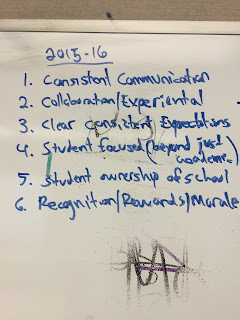 2015-16
1. Consistent Communication
2. Collaboration/Experiential
3. Clear consistent Expectations
4. Student focused (beyond just
academic)
5. Student ownership of school
6. Recognition/Rewards/Morale